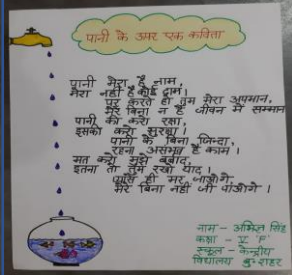 पानी के उपर एक कविता
पानी मेरा है नाम,
मेरा नहीं है कोई दाम।
पर करते हो तुम मेरा अपमान,
मेरे बिना न है जीवन में सम्मान
पानी की करो रक्षा,
इसकी करो सुरक्षा।
पानी के बिना जिन्दा,
रहना असंभव है काम।
मत करो मुझे बर्बाद,
इतना तो तुम रखो याद।
प्यासे ही मर जाओगे,
मेरे बिना नहीं जी पाओगे।
नाम - अमित सिंह
कक्षा - V 'F'
स्कूल - केन्द्रीय
विद्यालय